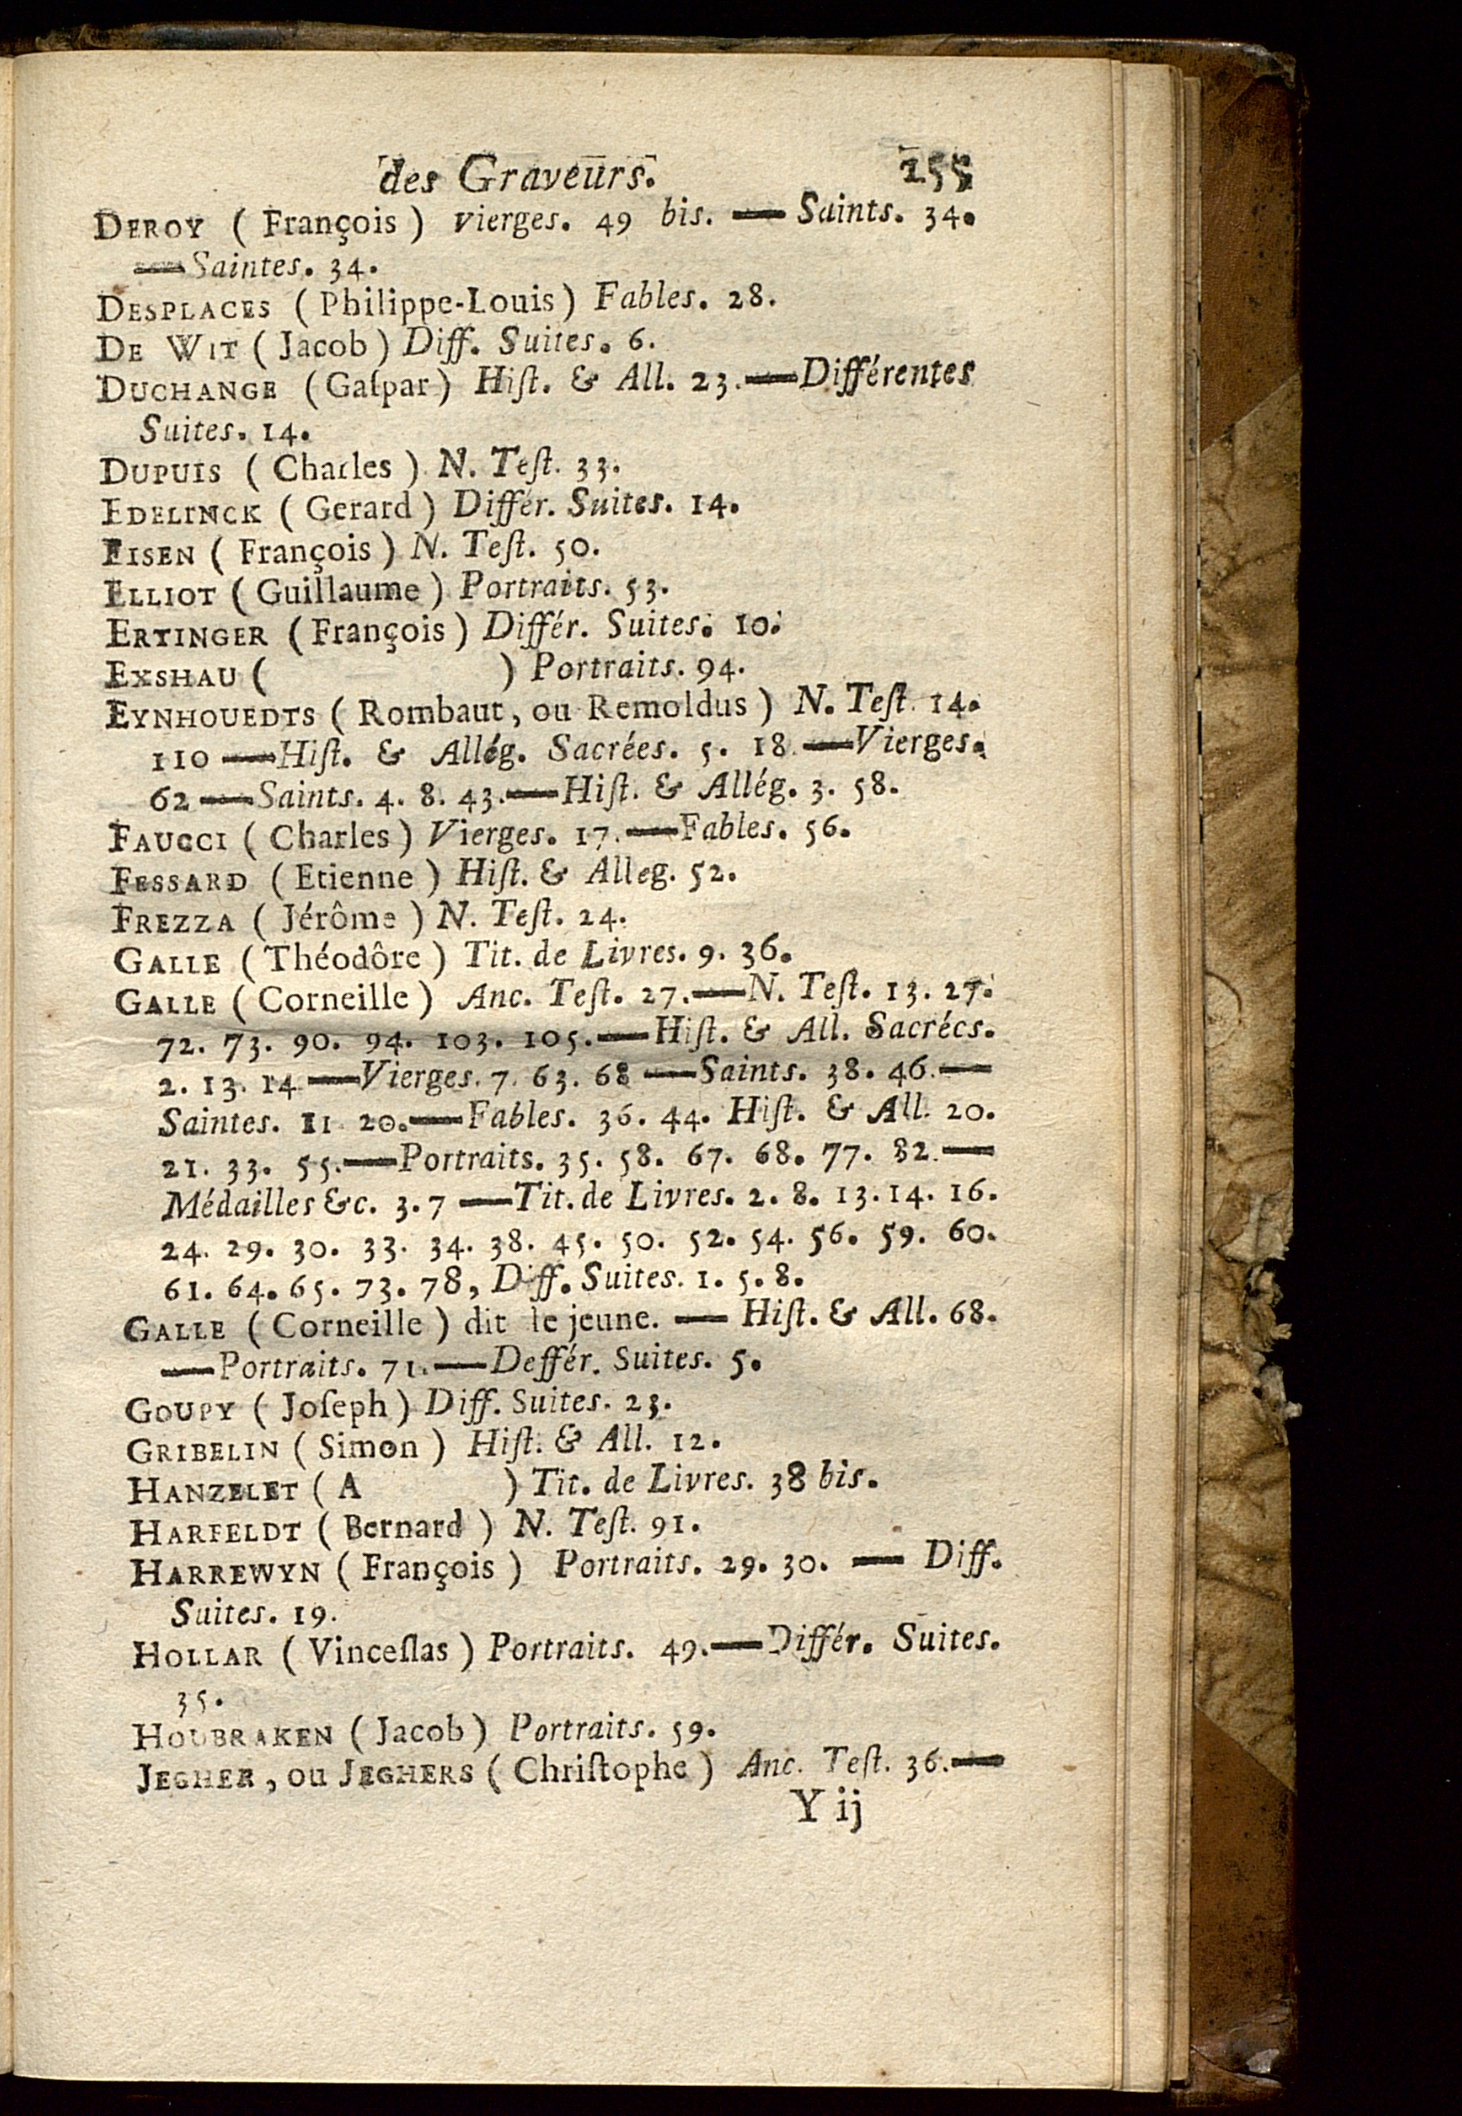 des Graveurs. 255
DEROY ( François ) Vierges. 49 bis. — Saints. 34.
— Saintes. 34.
DESPLACES ( Philippe-Louis ) Fables. 28.
DE WIT ( Jacob ) Diff. Suites. 6.
DUCHANGE ( Gaſpar ) Hiſt. & All. 23. — Différentes
Suites. 14.
DUPUIS ( Charles ) N. Teſt. 33.
EDELINCK ( Gerard ) Différ. Suites. 14.
EISEN ( François ) N. Teſt. 50.
ELLIOT ( Guillaume ) Portraits. 53.
ERTINGER ( François ) Différ. Suites. 10.
EXSHAU ( ) Portraits. 94.
EYNHOUEDTS ( Rombaut, ou Remoldus ) N. Teſt. 14.
110 — Hiſt. & Allég. Sacrées. 5. 18. — Vierges.
62 — Saints. 4. 8. 43. — Hiſt. & Allég. 3. 58.
FAUCCI ( Charles ) Vierges. 17. — Fables. 56.
FESSARD ( Etienne ) Hiſt. & Alleg. 52.
FREZZA ( Jérôme ) N. Teſt. 24.
GALLE ( Théodôre ) Tit. de Livres. 9. 36.
GALLE ( Corneille ) Anc. Teſt. 27. — N. Teſt. 13. 27.
72. 73. 90. 94. 103. 105. — Hiſt. & All. Sacrécs.
2. 13. 14 — Vierges. 7. 63. 68 — Saints. 38. 46. —
Saintes. 11 20. — Fables. 36. 44. Hiſt. & All. 20.
21. 33. 55. — Portraits. 35. 58. 67. 68. 77. 82. —
Médailles &c. 3. 7 — Tit. de Livres. 2. 8. 13. 14. 16.
24. 29. 30. 33. 34. 38. 45. 50. 52. 54. 56. 59. 60.
61. 64. 65. 73. 78, Diff. Suites. 1. 5. 8.
GALLE ( Corneille ) dit le jeune. — Hiſt. & All. 68.
— Portraits. 71. — Deffér. Suites. 5.
GOUPY ( Joſeph ) Diff. Suites. 23.
GRIBELIN ( Simon ) Hiſt. & All. 12.
HANZELET ( A ) Tit. de Livres. 38 bis.
HARFELDT ( Bernard ) N. Teſt. 91.
HARREWYN ( François ) Portraits. 29. 30. — Diff.
Suites. 19.
HOLLAR ( Vinceſlas ) Portraits. 49. — Différ. Suites.
35.
HOUBRAKEN ( Jacob ) Portraits. 59.
JEGHER, ou JEGHERS ( Chriſtophe ) Anc. Teſt. 36. —
Y ij